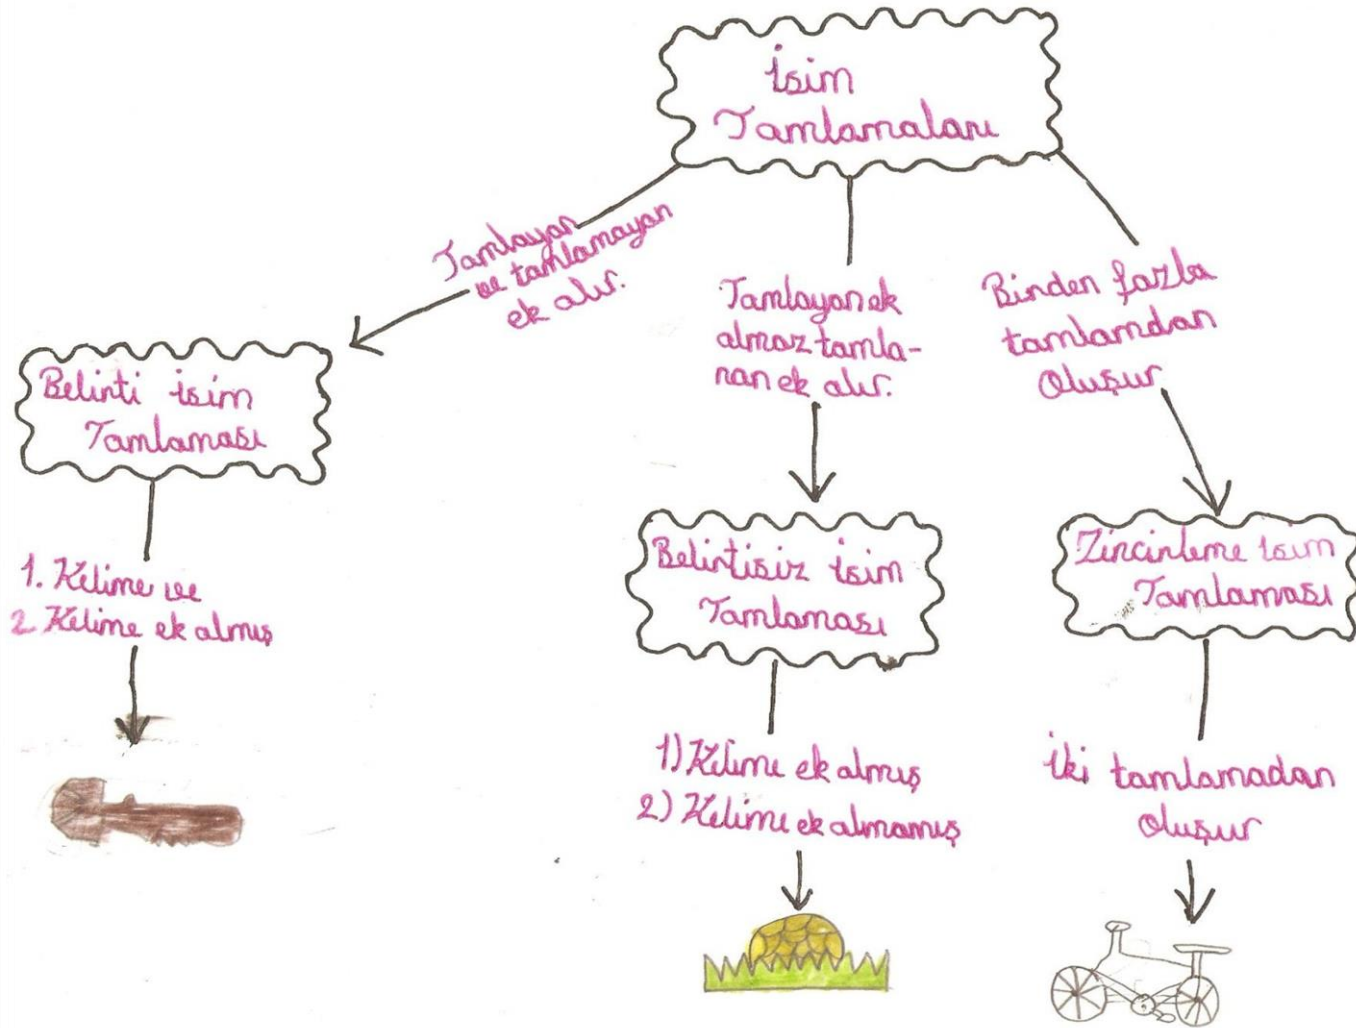 İsim
Tamlamaları
Tamlayan
ve tamlamayan
ek alır.
Tamlayan ek
almaz tamla-
nan ek alır.
Birden fazla
tamlamdan
Oluşur
Belirti isim
Tamlaması
1. Kelime ve
2. Kelime ek almış
Belirtisiz isim
Tamlaması
1) Kelime ek almış
2) Kelime ek almamış
Zincirleme isim
Tamlaması
İki tamlamadan
oluşur